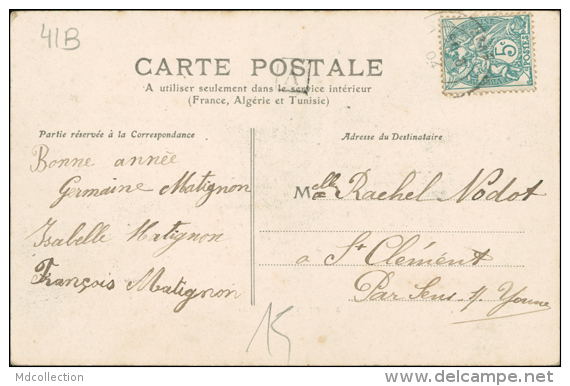 41B
CARTE POSTALE
A utiliser seulement dans le service intérieur
(France, Algérie et Tunisie)
Partie réservée à la Correspondance
Adresse du Destinataire
Bonne année
Germaine Matignon
Isabelle Matignon
François Matignon
Melle Rachel Nodot
à St Clément
Par Sens s/ Yonne
5
POSTES
A
15
Mdcollection
delcampe.net